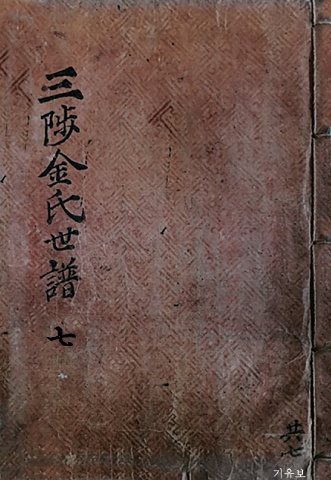 三陟金氏世譜 七
共七
기유보